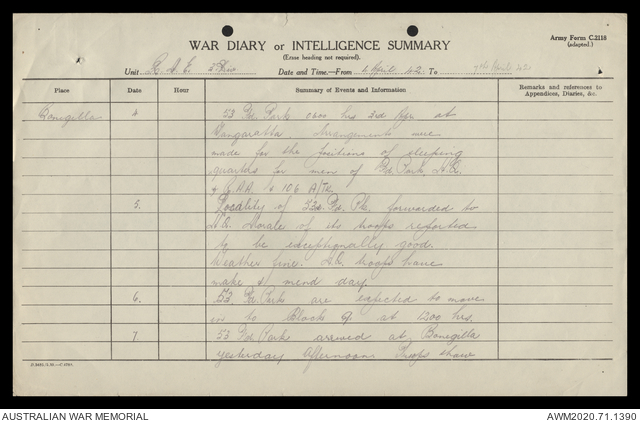 Army Form C.2118
(adapted.)
WAR DIARY or INTELLIGENCE SUMMARY
(Erase heading not required).
Unit R. A. E. 3 Div Date and Time.—From 1 April 42 To 7th April 42
Place Date Hour Summary of Events and Information Remarks and references to
Appendices, Diaries, &c.
Bonegilla 4 53 Fd. Park 0600 hrs 3rd Apr. at
Wangaratta. Arrangements were
made for the positions of sleeping
quarters for men of Fd. Park, H.Q.
& 106 A/Tk
5. Locality of Fd. Pk. forwarded to
H.Q. Morale of its troops reported
to be exceptionally good.
Weather fine. H.Q. troops have
make & mend day.
6. 53 Fd. Park are expected to move
in to Block G. at 1200 hrs.
7 53 Fd Park arrived at Bonegilla
yesterday afternoon. Troops show
AUSTRALIAN WAR MEMORIAL
AWM2020.71.1390